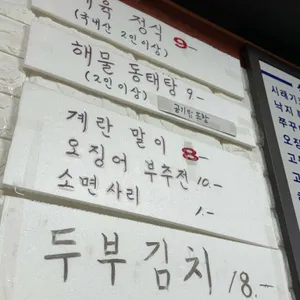 제육 정식 9.-
(국내산 2인이상)
해물 동태탕 9.-
(2인 이상)
공기밥 포함
계란 말이 8.-
오징어 부추전 10.-
소면사리 1.-
두부김치 18.-
시래기
낙지
쭈꾸
오징